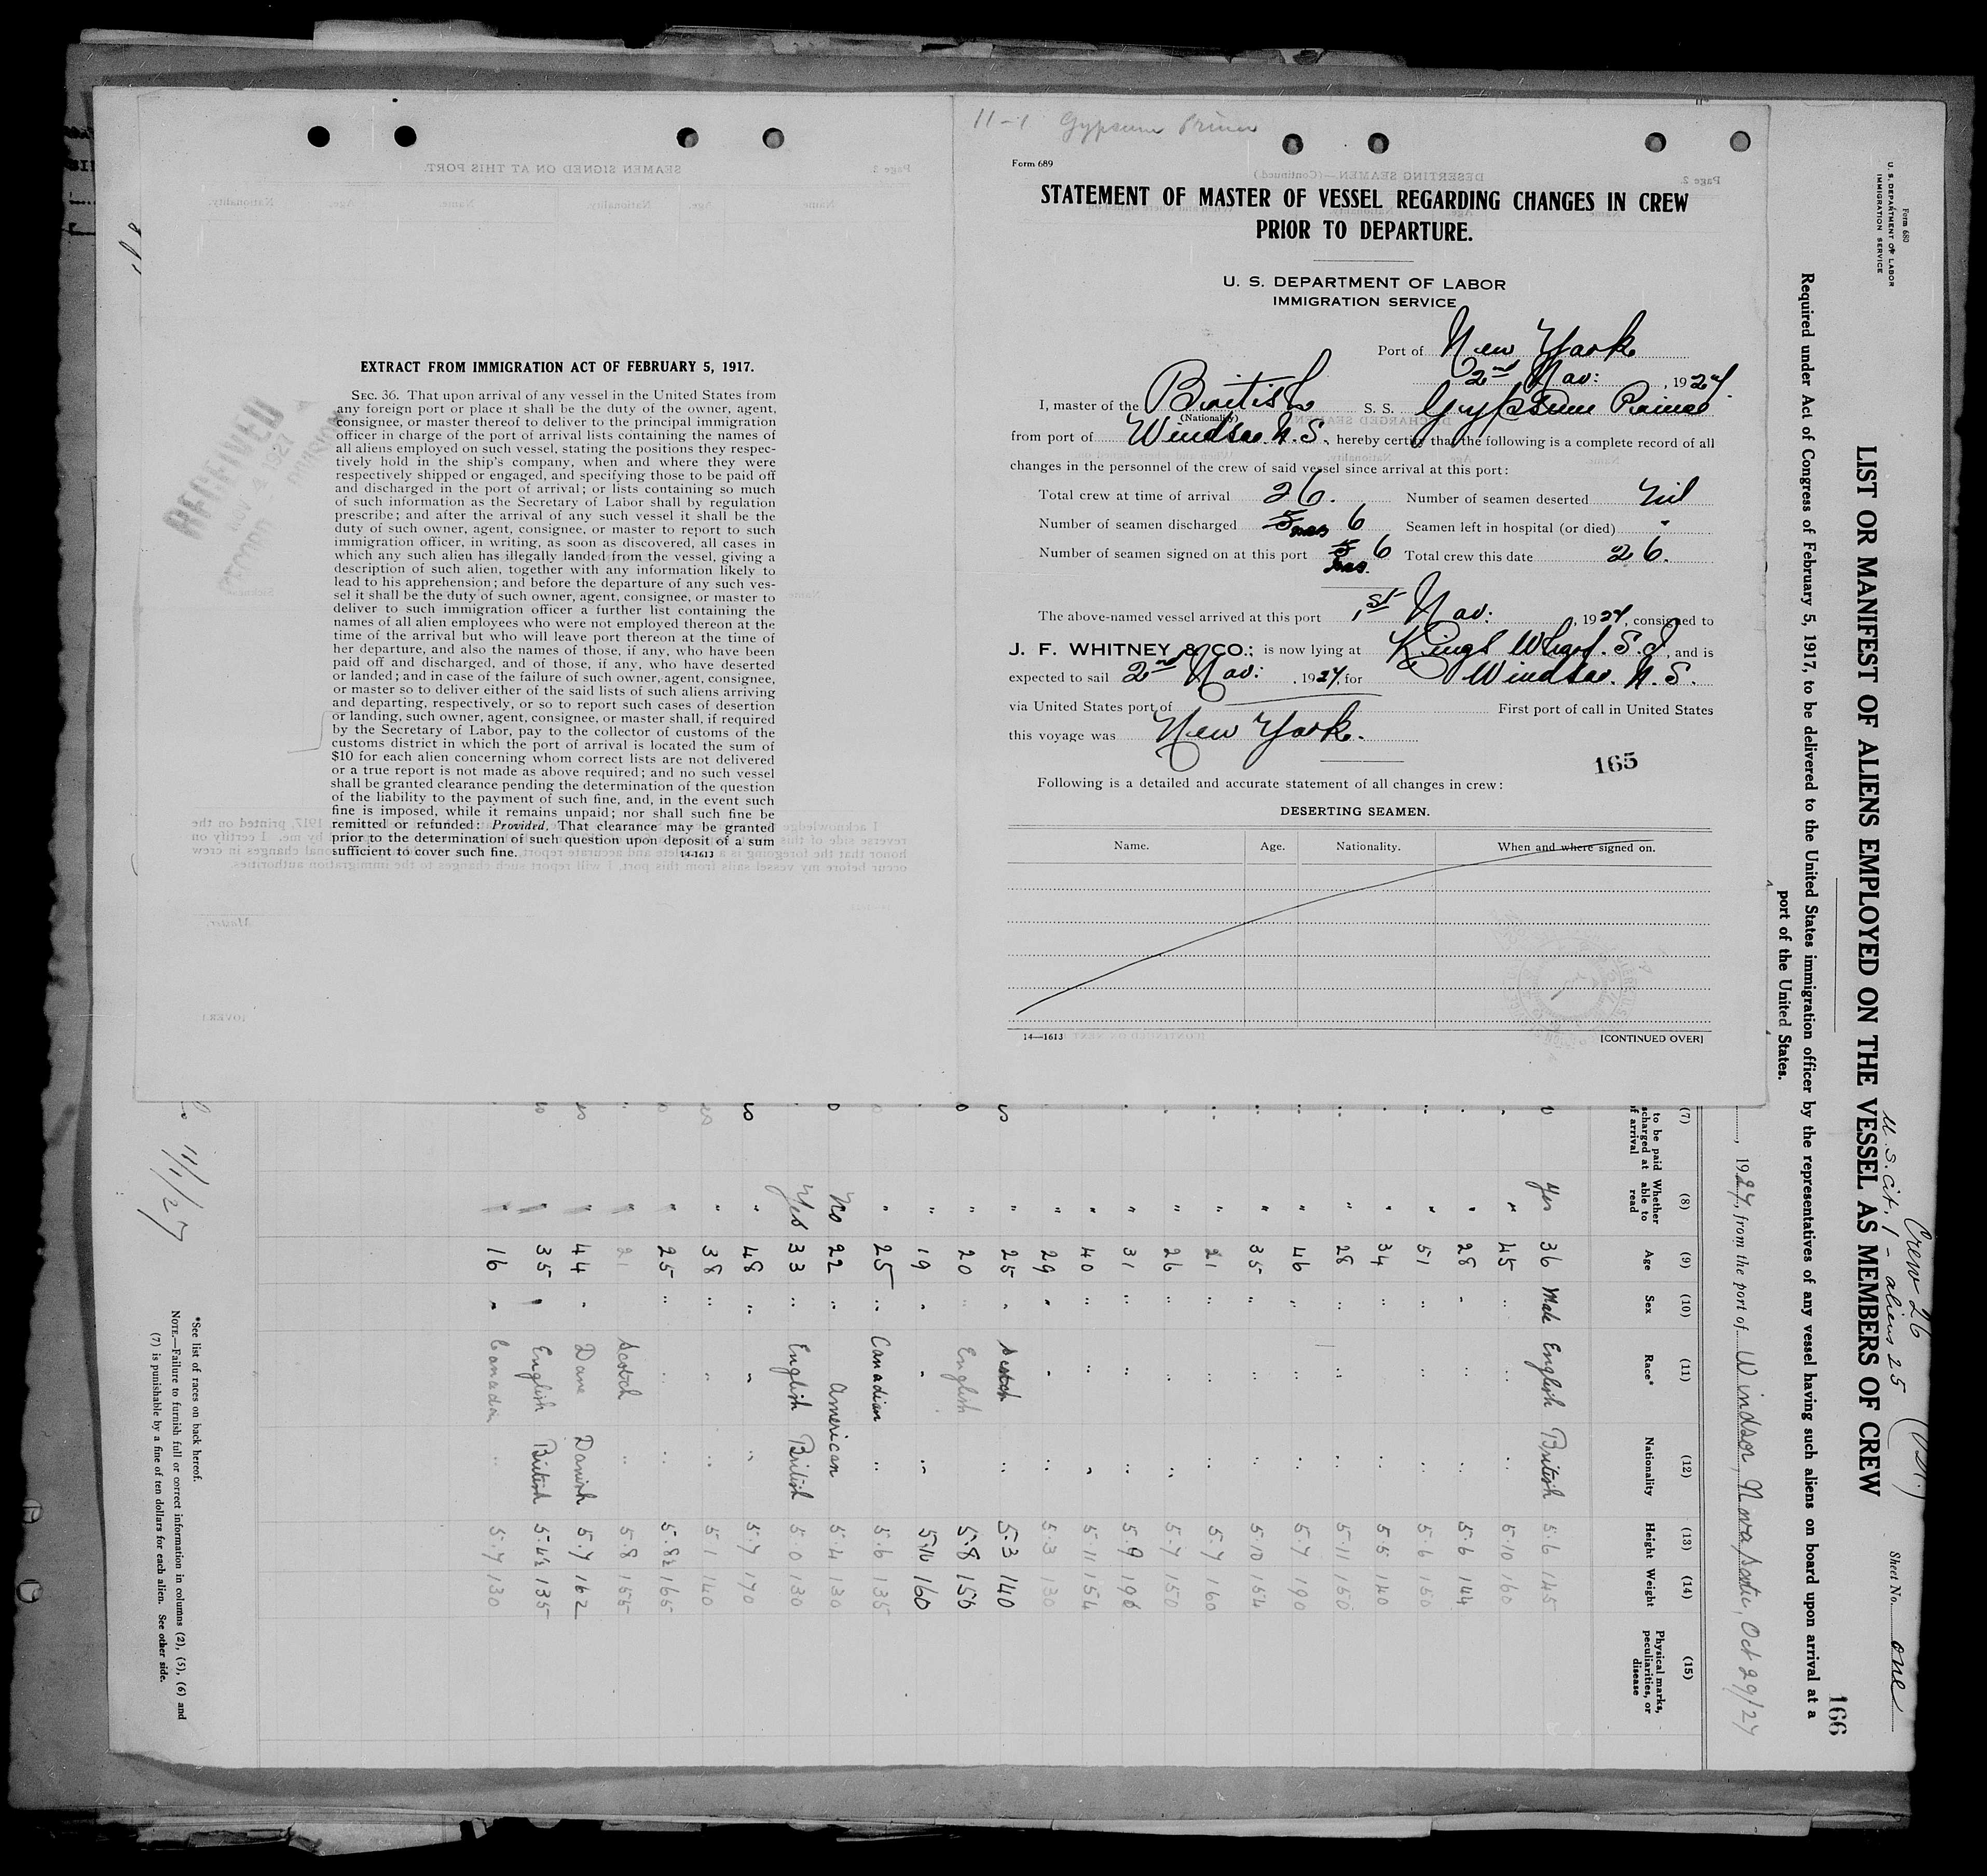 11-1 Gypsum Prince
Form 689
STATEMENT OF MASTER OF VESSEL REGARDING CHANGES IN CREW
PRIOR TO DEPARTURE.
U. S. DEPARTMENT OF LABOR
IMMIGRATION SERVICE
Port of New York
2nd Nov: , 1927.
I, master of the British S. S. Gypsum Prince
(Nationality)
from port of Windsor N.S., hereby certify that the following is a complete record of all
changes in the personnel of the crew of said vessel since arrival at this port:
Total crew at time of arrival 26. Number of seamen deserted Nil
Number of seamen discharged 5 6 Seamen left in hospital (or died) "
Number of seamen signed on at this port 5 6 Total crew this date 26.
The above-named vessel arrived at this port 1st Nov: , 1927, consigned to
J. F. WHITNEY & CO.; is now lying at Kings Wharf. S.I, and is
expected to sail 2nd Nov: , 1927, for Windsor. N.S.
via United States port of First port of call in United States
this voyage was New York.
165
Following is a detailed and accurate statement of all changes in crew:
DESERTING SEAMEN.
Name. Age. Nationality. When and where signed on.
14—1613 [CONTINUED OVER]
EXTRACT FROM IMMIGRATION ACT OF FEBRUARY 5, 1917.
SEC. 36. That upon arrival of any vessel in the United States from
any foreign port or place it shall be the duty of the owner, agent,
consignee, or master thereof to deliver to the principal immigration
officer in charge of the port of arrival lists containing the names of
all aliens employed on such vessel, stating the positions they respec-
tively hold in the ship's company, when and where they were
respectively shipped or engaged, and specifying those to be paid off
and discharged in the port of arrival; or lists containing so much
of such information as the Secretary of Labor shall by regulation
prescribe; and after the arrival of any such vessel it shall be the
duty of such owner, agent, consignee, or master to report to such
immigration officer, in writing, as soon as discovered, all cases in
which any such alien has illegally landed from the vessel, giving a
description of such alien, together with any information likely to
lead to his apprehension; and before the departure of any such ves-
sel it shall be the duty of such owner, agent, consignee, or master to
deliver to such immigration officer a further list containing the
names of all alien employees who were not employed thereon at the
time of the arrival but who will leave port thereon at the time of
her departure, and also the names of those, if any, who have been
paid off and discharged, and of those, if any, who have deserted
or landed; and in case of the failure of such owner, agent, consignee,
or master so to deliver either of the said lists of such aliens arriving
and departing, respectively, or so to report such cases of desertion
or landing, such owner, agent, consignee, or master shall, if required
by the Secretary of Labor, pay to the collector of customs of the
customs district in which the port of arrival is located the sum of
$10 for each alien concerning whom correct lists are not delivered
or a true report is not made as above required; and no such vessel
shall be granted clearance pending the determination of the question
of the liability to the payment of such fine, and, in the event such
fine is imposed, while it remains unpaid; nor shall such fine be
remitted or refunded: Provided, That clearance may be granted
prior to the determination of such question upon deposit of a sum
sufficient to cover such fine. 14-1613
RECEIVED
NOV 4 1927
RECORD DIVISION
Form 680
U. S. DEPARTMENT OF LABOR
IMMIGRATION SERVICE
Crew 26
U.S. Cit. 1 - aliens 25
Sheet No. one
166
LIST OR MANIFEST OF ALIENS EMPLOYED ON THE VESSEL AS MEMBERS OF CREW
Required under Act of Congress of February 5, 1917, to be delivered to the United States immigration officer by the representatives of any vessel having such aliens on board upon arrival at a
port of the United States.
, 1927, from the port of Windsor, Nova Scotia, Oct 29/27
(7) (8) (9) (10) (11) (12) (13) (14) (15)
to be paid Whether able to read Age Sex Race* Nationality Height Weight Physical marks, peculiarities, or disease
Yes 36 Male English British 5.6 145
" 45 " " " 5.10 160
" 28 " " " 5.6 144
" 51 " " " 5.6 150
" 34 " " " 5.5 140
" 28 " " " 5.11 150
" 46 " " " 5.7 190
" 35 " " " 5.10 154
" 21 " " " 5.7 160
" 26 " " " 5.7 150
" 31 " " " 5.9 196
" 40 " " " 5.11 154
" 29 " " " 5.3 130
" 25 " Scotch " 5.3 140
" 20 " English " 5.8 150
" 19 " " " 5.10 160
" 25 " Canadian " 5.6 135
No 22 " American 5.4 130
Yes 33 " English British 5.0 130
" 48 " " " 5.7 170
" 38 " " " 5.1 140
" 25 " " " 5.8½ 165
" 21 " Scotch " 5.8 155
" 44 " Dane Danish 5.7 162
" 35 " English British 5.4½ 135
" 16 " Canadian " 5.7 130
*See list of races on back hereof.
NOTE.—Failure to furnish full or correct information in columns (2), (5), (6) and
(7) is punishable by a fine of ten dollars for each alien. See other side.
11/1/27